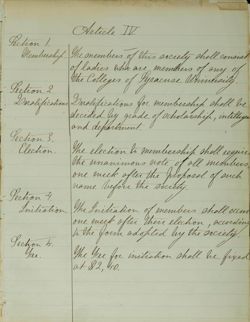 Article IV
Section 1. Membership. The members of this society shall consist
of ladies who are members of any of
the Colleges of Syracuse University
Section 2. Qualifications. Qualifications for membership shall be
decided by grade of scholarship, intellect
and deportment
Section 3. Election. The election to membership shall require
the unanimous vote of all members,
one week after the proposal of such
name before the society.
Section 4. Initiation. The Initiation of members shall occur
one week after their election, according
to the form adopted by the society.
Section 5. Fee. The Fee for initiation shall be fixed
at $2,